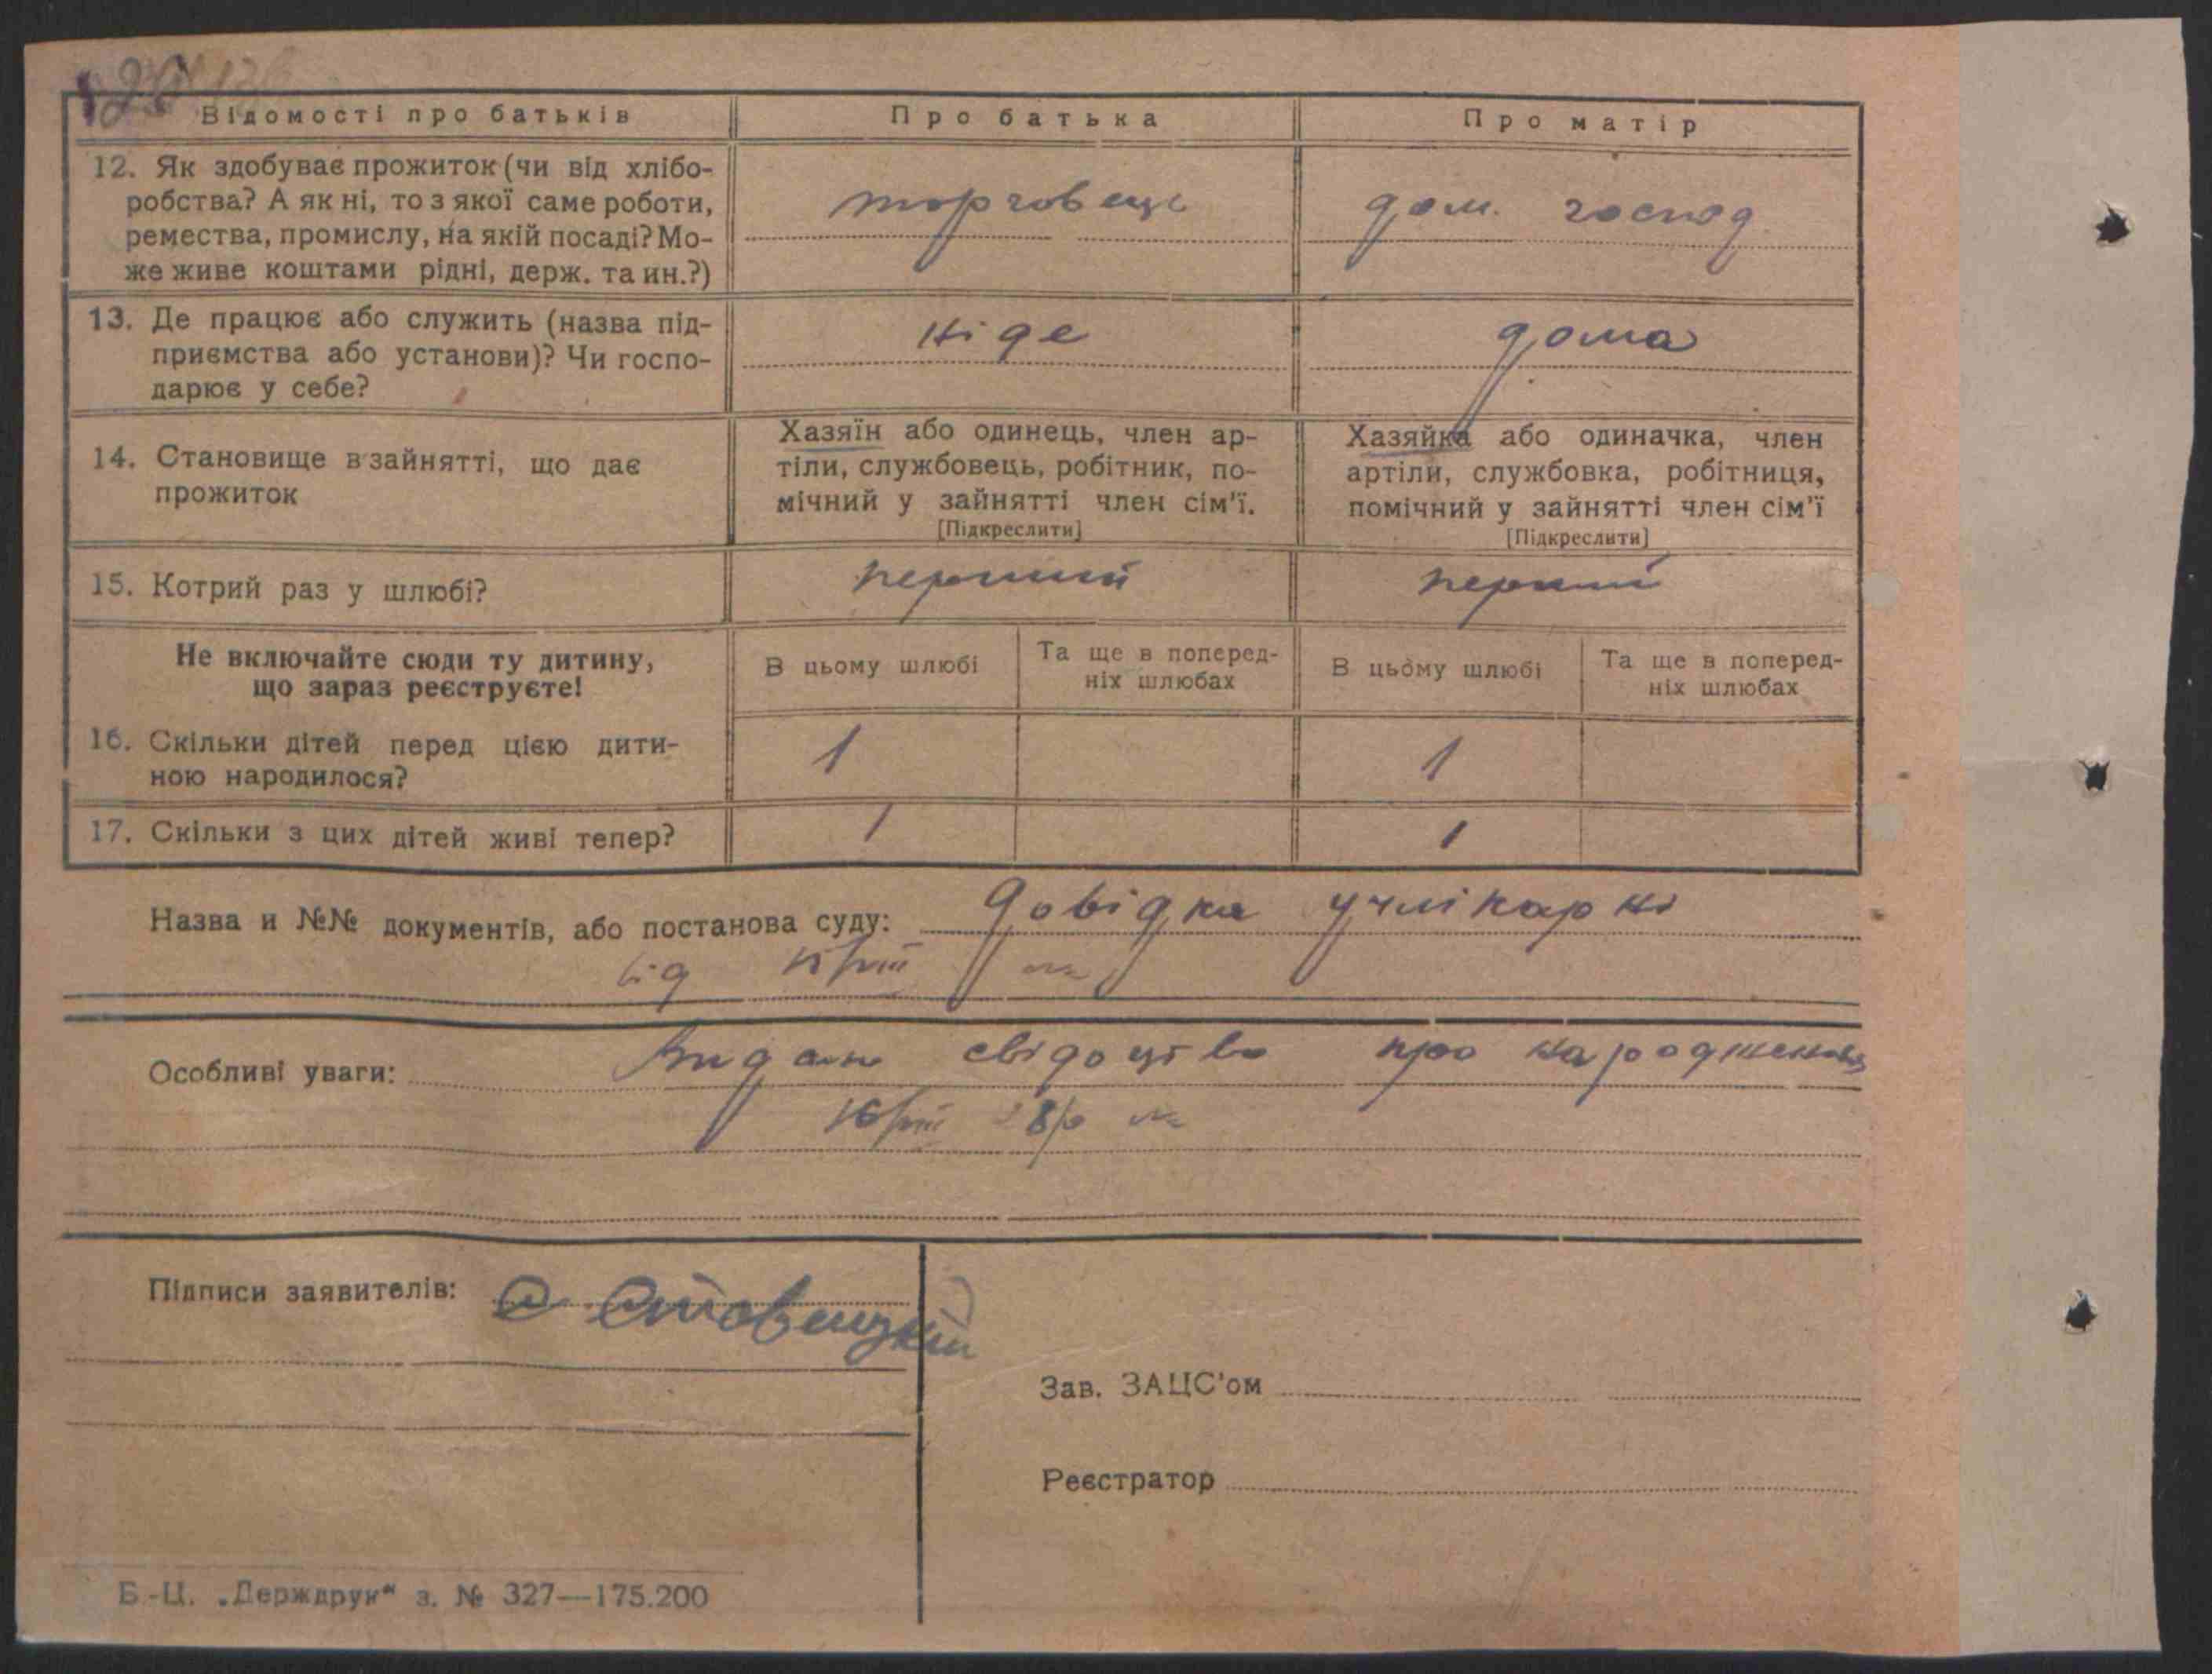 Відомості про батьків Про батька Про матір
12. Як здобуває прожиток (чи від хлібо-
робства? А як ні, то з якої саме роботи,
ремества, промислу, на якій посаді? Мо-
же живе коштами рідні, держ. та ин.?)
торговець
дом. господ.
13. Де працює або служить (назва під-
приємства або установи)? Чи госпо-
дарює у себе?
ніде
дома
14. Становище в зайнятті, що дає
прожиток
Хазяїн або одинець, член ар-
тіли, службовець, робітник, по-
мічний у зайнятті член сім'ї.
[Підкреслити]
Хазяйка або одиначка, член
артіли, службовка, робітниця,
помічний у зайнятті член сім'ї
[Підкреслити]
15. Котрий раз у шлюбі?
перший
перший
Не включайте сюди ту дитину,
що зараз реєструєте!
В цьому шлюбі
Та ще в поперед-
ніх шлюбах
В цьому шлюбі
Та ще в поперед-
ніх шлюбах
16. Скільки дітей перед цією дити-
ною народилося?
1
1
17. Скільки з цих дітей живі тепер?
1
1
Назва и №№ документів, або постанова суду: довідка
від
Особливі уваги: Видано свідоцтво про народження
Підписи заявителів:
Зав. ЗАЦС'ом
Реєстратор
Б.-Ц. „Держдрук“ з. № 327—175.200